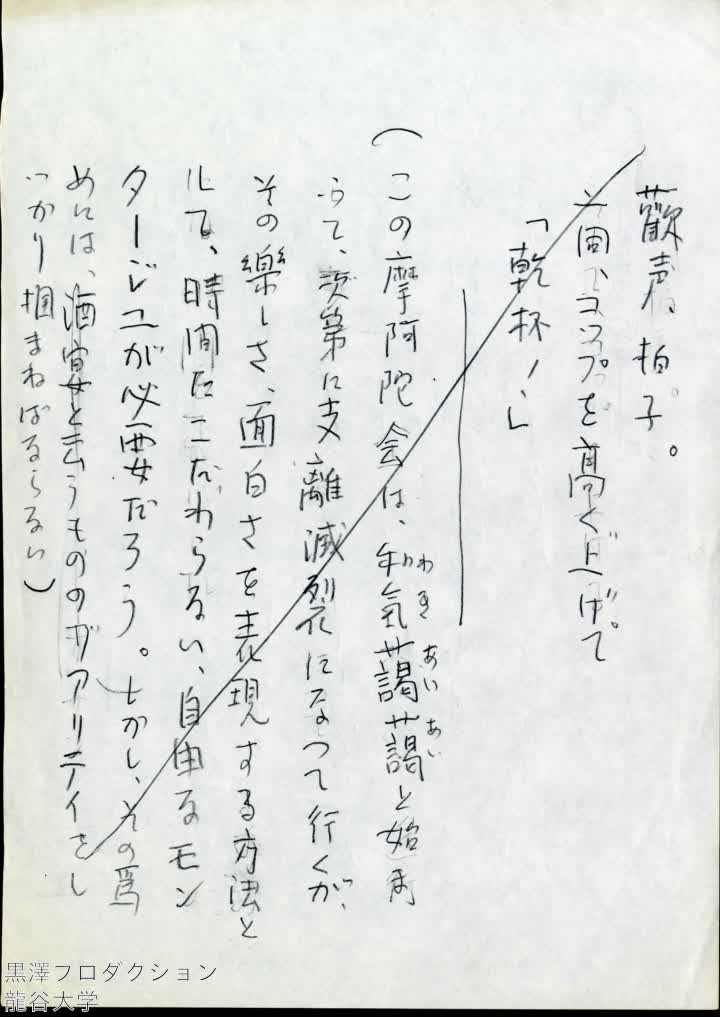 歡声、拍子。
一同、コップを高く上げて
「乾杯！」
(この摩阿陀会は、和氣藹藹と始ま
わき あいあい
って、次第に支離滅裂になつて行くが、
その樂しさ、面白さを表現する方法と
して、時間にこだわらない、自由なモン
タージユが必要だろう。しかし、その爲
めには、酒宴と云うもののリアリティをし
つかり掴まねばならない)
黒澤プロダクション
龍谷大学